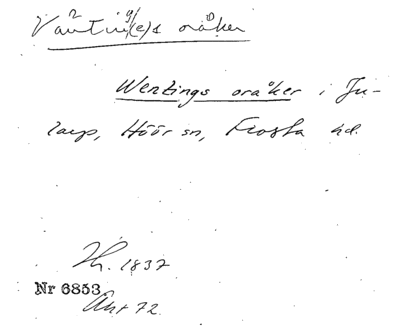 oråker
Wentings oråker i Ju-
larp, Höör sn, Frosta hd.
Th. 1837
Nr 6853
Ant 72.